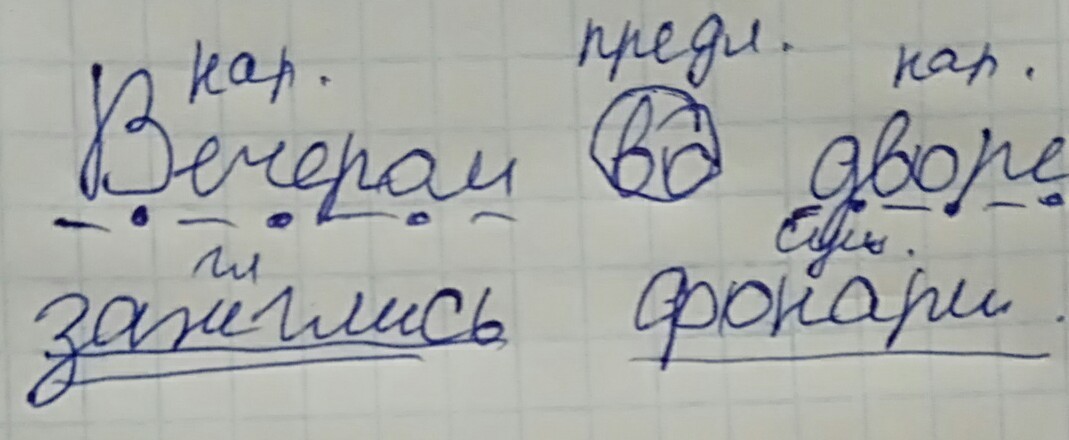 нар. предл. нар.
Вечером во дворе
гл сущ.
зажглись фонари.